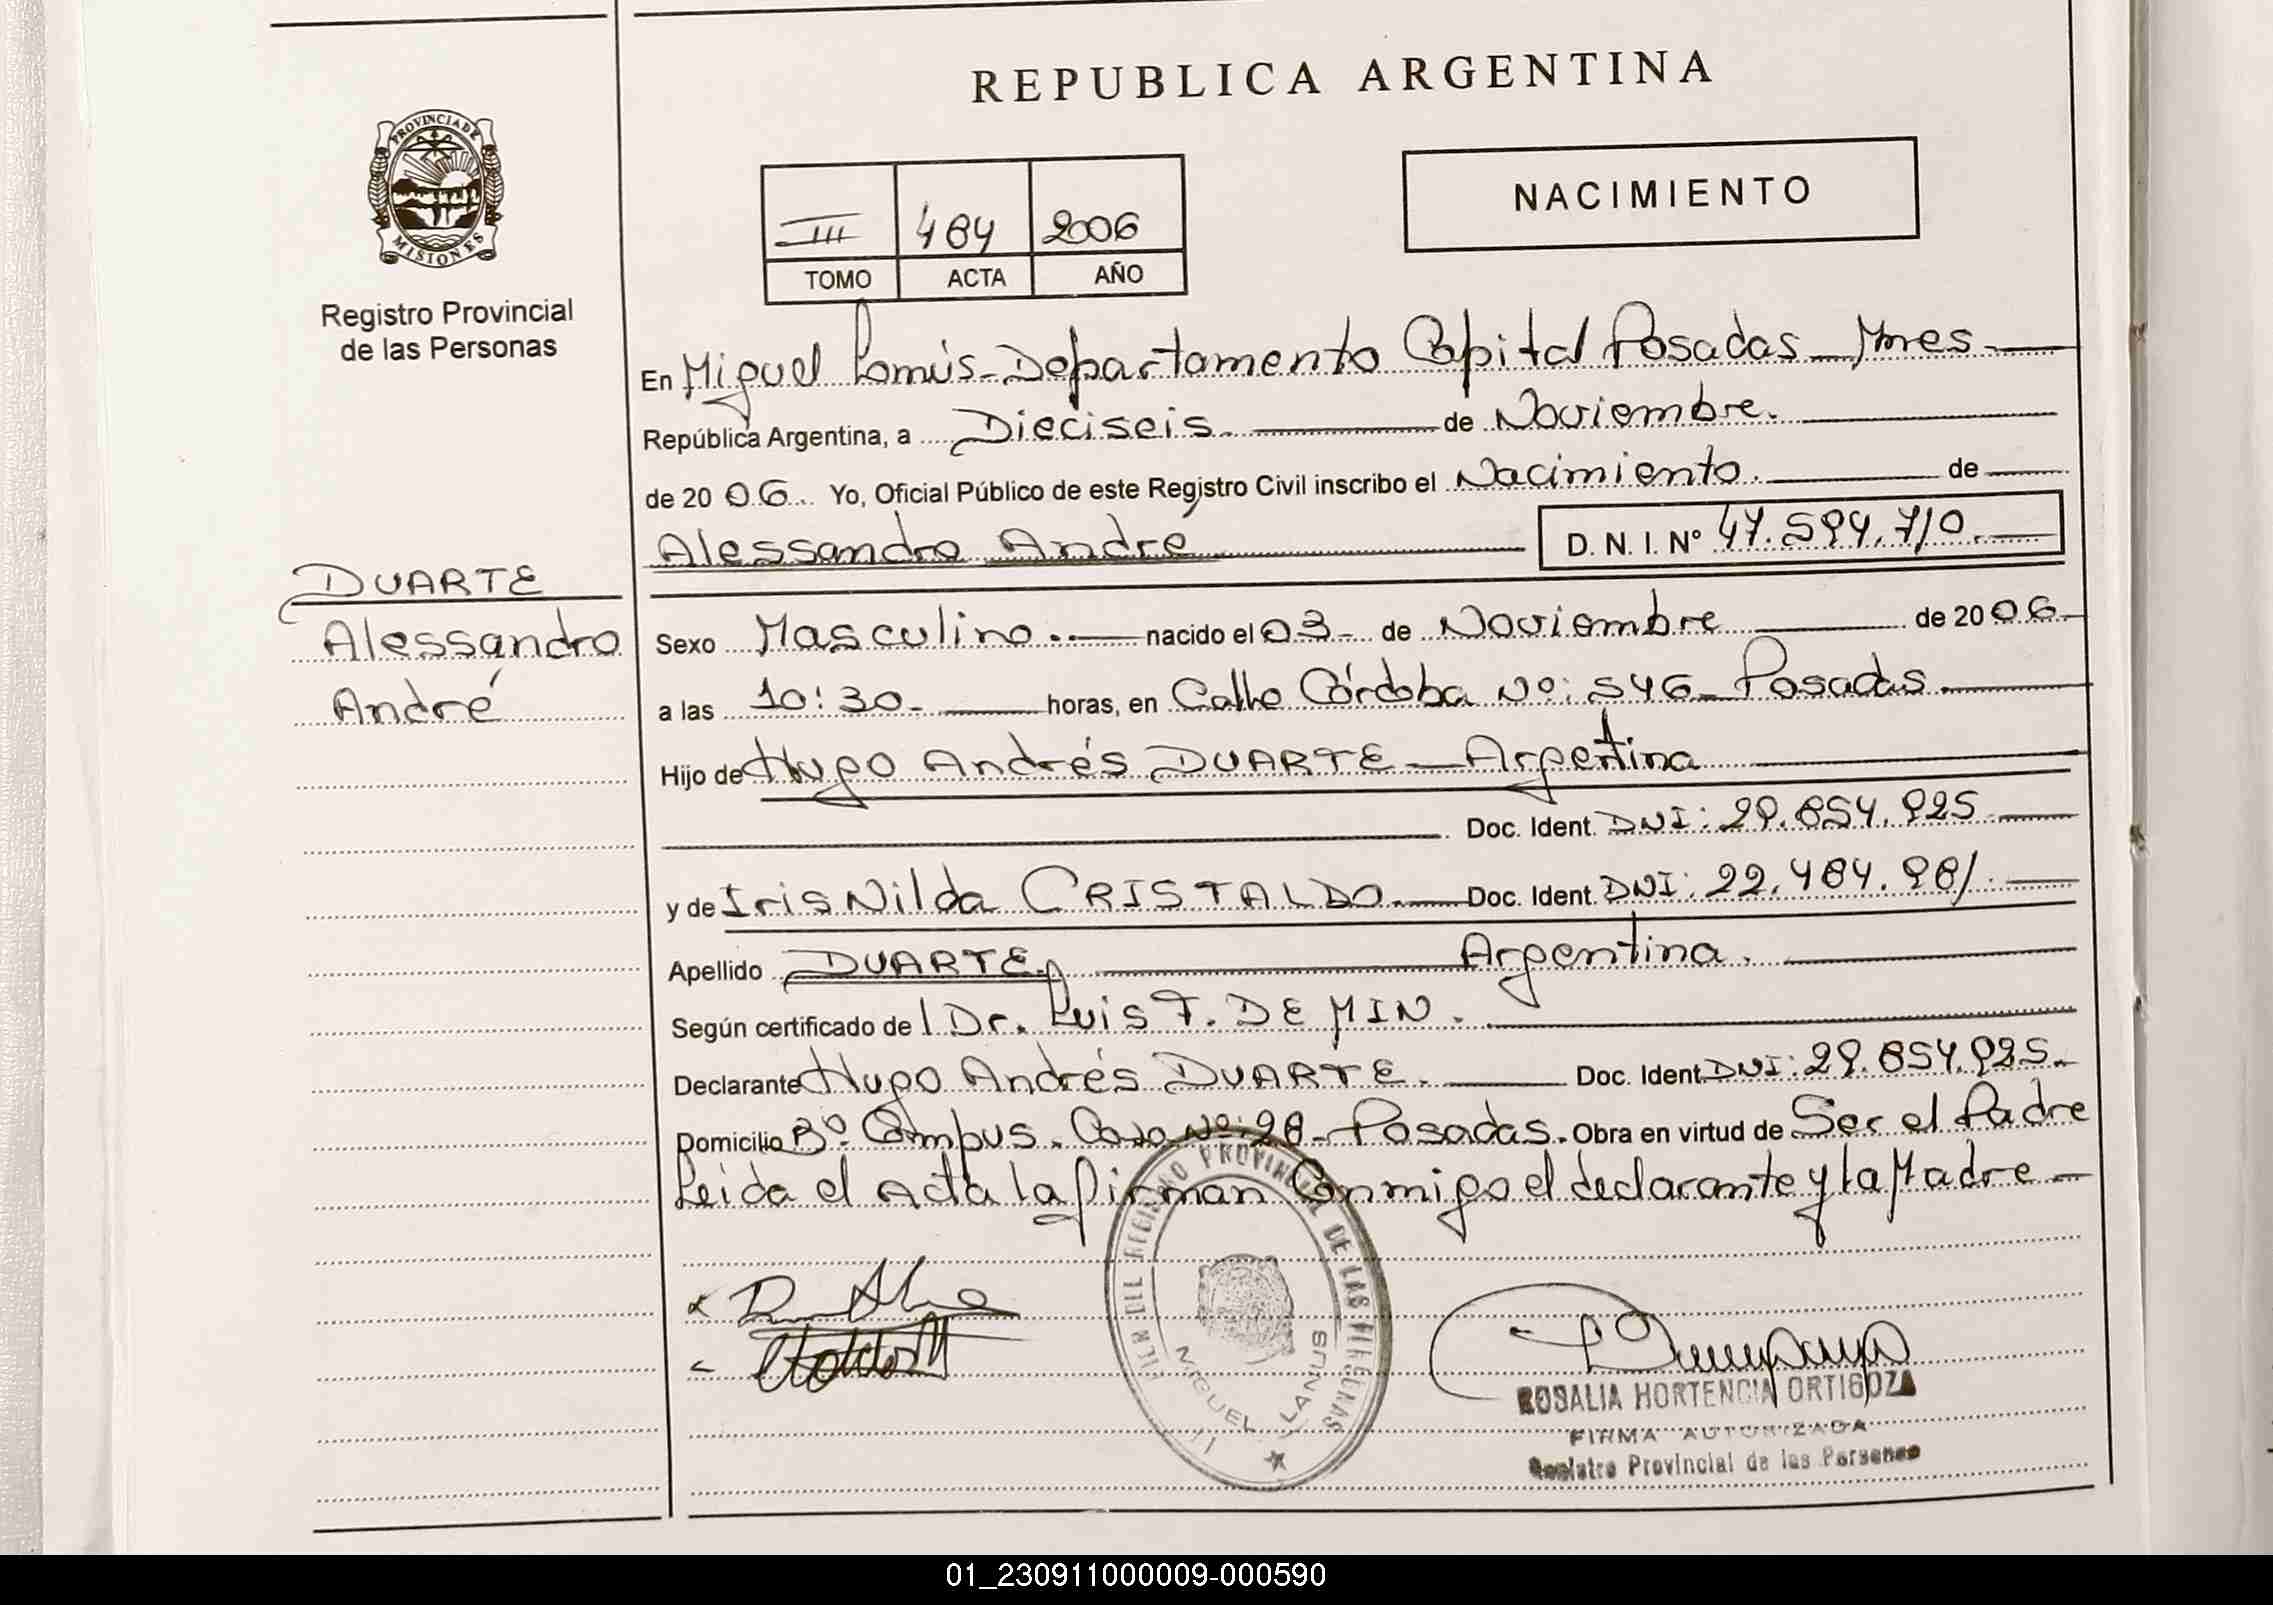 REPUBLICA ARGENTINA
PROVINCIA DE
MISIONES
Registro Provincial
de las Personas
NACIMIENTO
III 484 2006
TOMO ACTA AÑO
En Miguel Lanús - Departamento Capital Posadas - Mnes
República Argentina, a Dieciseis. de Noviembre.
de 20 06 Yo, Oficial Público de este Registro Civil inscribo el Nacimiento. de
Alessandro André D. N. I. Nº 47.594.710.
DUARTE
Alessandro
André
Sexo Masculino.. nacido el 03 - de Noviembre de 20 06
a las 10:30 - horas, en Calle Córdoba Nº: 546 - Posadas
Hijo de Hugo Andrés DUARTE - Argentina
Doc. Ident. DNI: 29.854.925
y de Iris Nilda CRISTALDO. Doc. Ident. DNI: 22.484.981.
Apellido DUARTE. Argentina.
Según certificado de l Dr. Luis F. DE MIN.
Declarante Hugo Andrés DUARTE. Doc. Ident DNI: 29.854.925.
Domicilio Bº. Campus. Casa Nº: 28 - Posadas. Obra en virtud de Ser el Padre
Leida el Acta la firman Conmigo el declarante y la Madre -
REGISTRO PROVINCIAL DE LAS PERSONAS
MIGUEL LANUS
ROSALIA HORTENCIA ORTIGOZA
FIRMA AUTORIZADA
Registro Provincial de las Personas
01_230911000009-000590